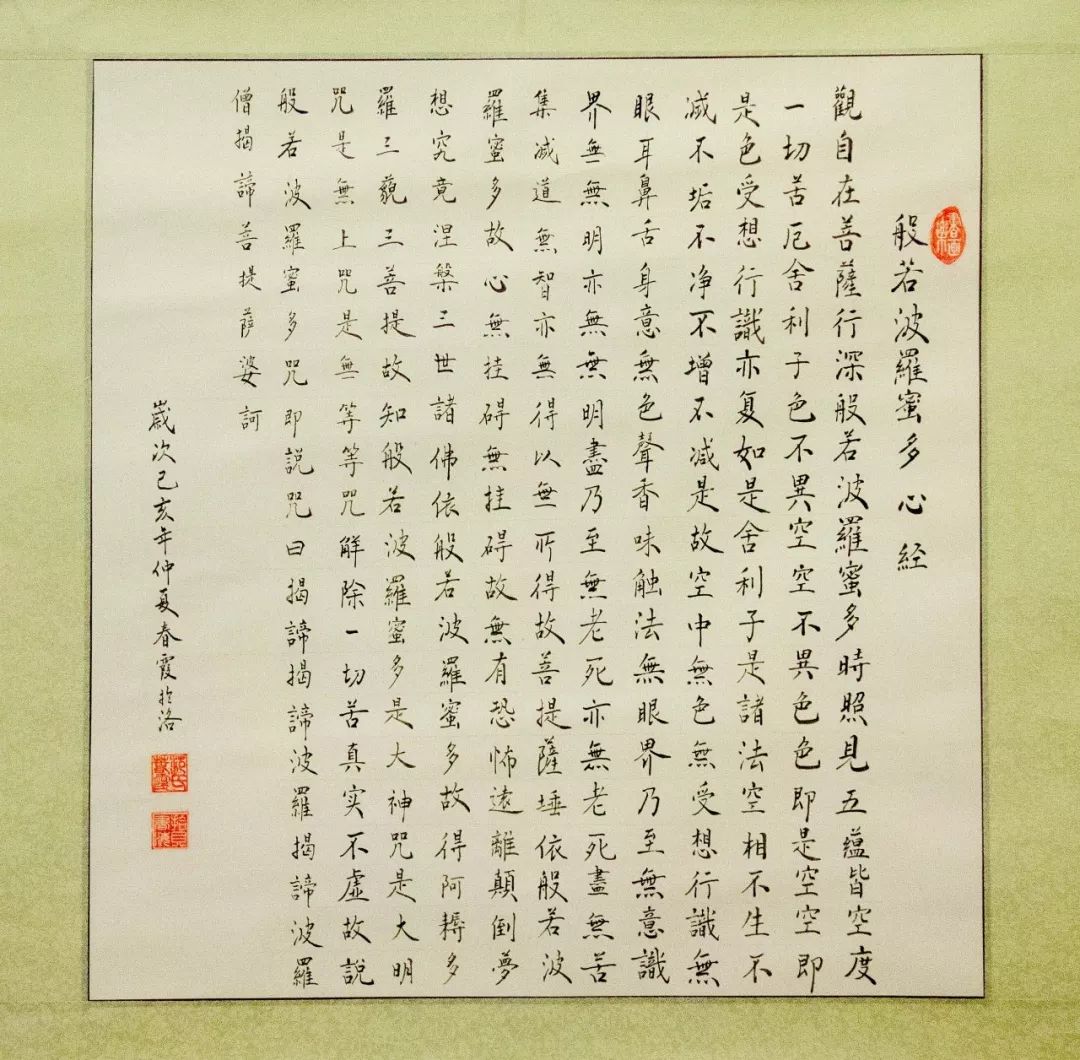 般若波羅蜜多心经
觀自在菩薩行深般若波羅蜜多時照見五蕴皆空度
一切苦厄舍利子色不異空空不異色色即是空空即
是色受想行識亦复如是舍利子是諸法空相不生不
减不垢不净不增不减是故空中無色無受想行識無
眼耳鼻舌身意無色聲香味触法無眼界乃至無意識
界無無明亦無無明盡乃至無老死亦無老死盡無苦
集减道無智亦無得以無所得故菩提薩埵依般若波
羅蜜多故心無挂碍無挂碍故無有恐怖遠離顛倒夢
想究竟涅槃三世諸佛依般若波羅蜜多故得阿耨多
羅三藐三菩提故知般若波羅蜜多是大神咒是大明
咒是無上咒是無等等咒解除一切苦真实不虚故説
般若波羅蜜多咒即説咒曰揭諦揭諦波羅揭諦波羅
僧揭諦菩提萨婆訶
嵗次己亥年仲夏春霞於洛